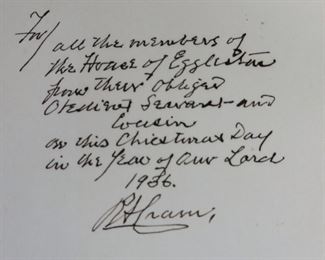 For
all the members of
the House of Eggleston
from their obliged
Obedient Servant and
Cousin
on this Christmas Day
in the Year of Our Lord
1936.
R A Cram.